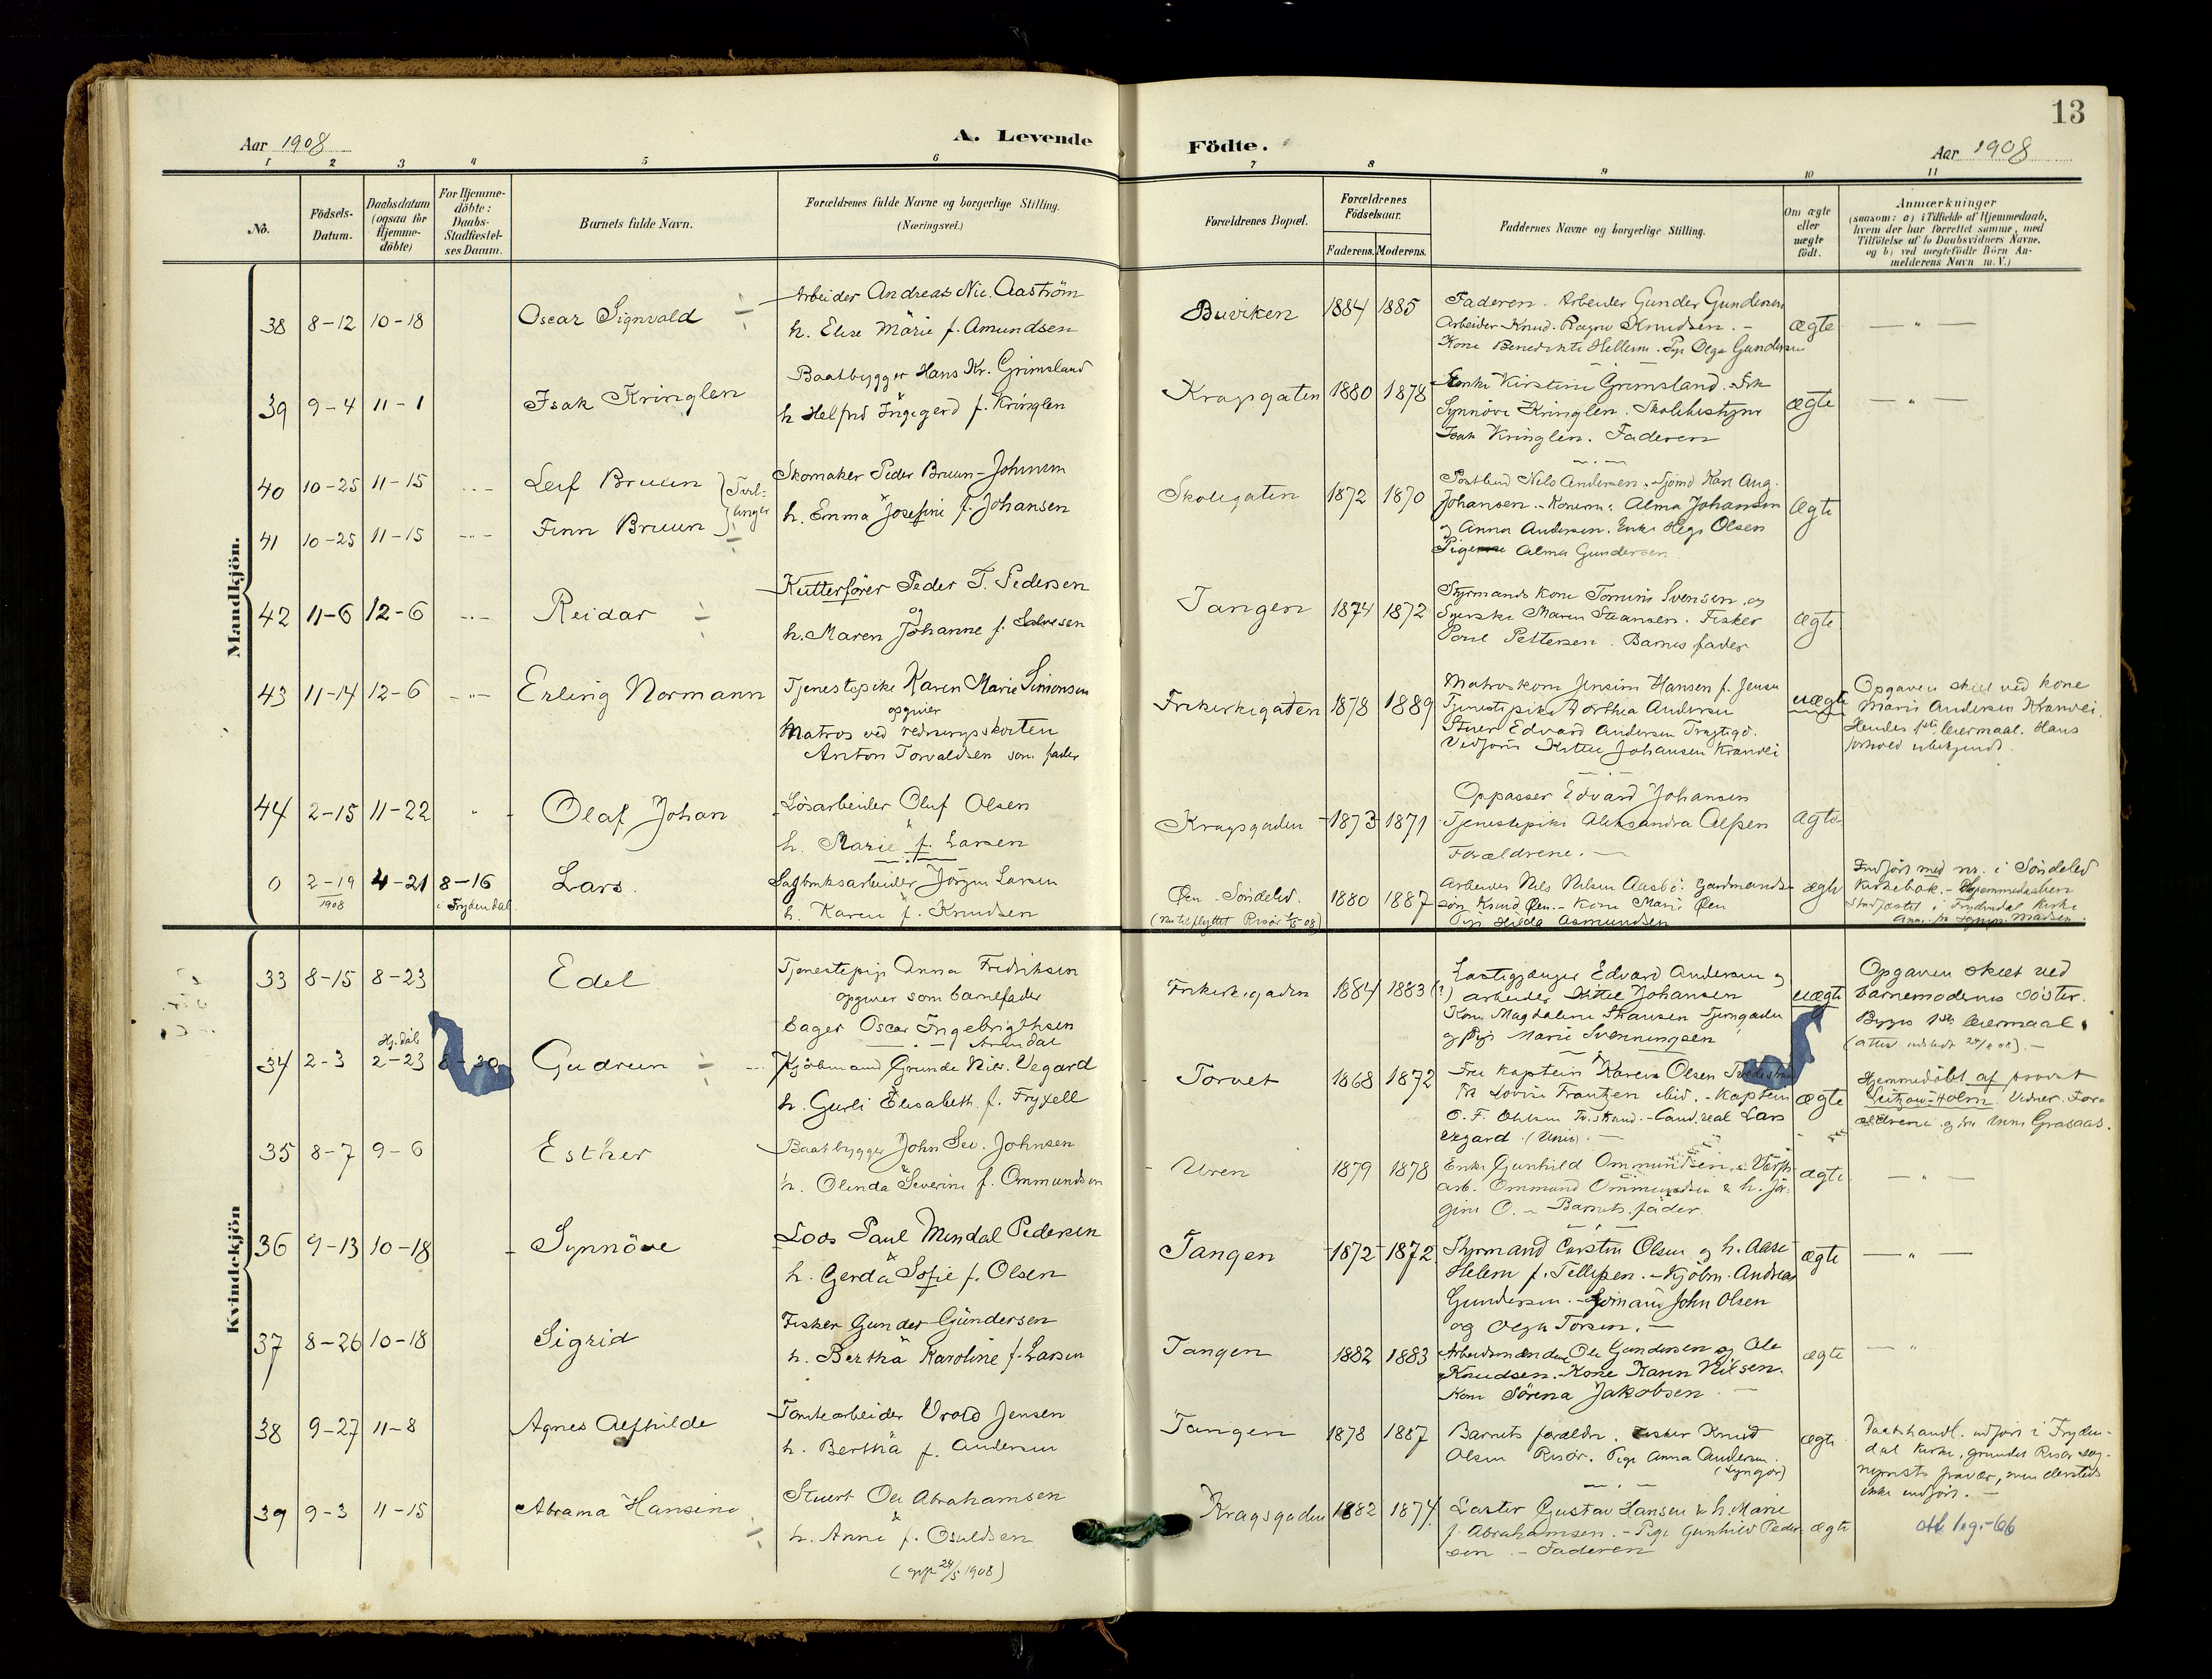 13
Aar 1908
A. Levende Födte.
Aar 1908
1 2 3 4 5 6 7 8 9 10 11
No.
Födsels-
Datum.
Daabsdatum
(ogsaa for
Hjemme-
döbte)
For Hjemme-
döbte:
Daabs-
Stadfæstel-
ses Datum.
Barnets fulde Navn.
Forældrenes fulde Navne og borgerlige Stilling.
(Næringsvei.)
Forældrenes Bopæl.
Forældrenes
Födselsaar.
Faderens. Moderens.
Faddernes Navne og borgerlige Stilling.
Om ægte
eller
uægte
födt.
Anmærkninger
(saasom: a) i Tilfælde af Hjemmedaab,
hvem der har forrettet samme, med
Tilföielse af to Daabsvidners Navne,
og b) ved uægtefödte Börn An-
melderens Navn m. V.)
Mandkjön.
38 8-12 10-18 Oscar Signvald
Arbeider Andreas Nic. Aaström
h. Elise Marie f. Amundsen
Buviken 1884 1885
Faderen. Arbeider Gunder Gundersen
Arbeider Knud. Ragnv Knudsen. -
Kone Benedikte Hellem. Pige Olga Gundersen
ægte
39 9-4 11-1 Isak Kringlen
Baatbygger Hans Kr. Grimsland
h Helfrid Ingegerd f. Kringlen
Kragsgaten 1880 1878
Enke Kirstine Grimsland. Frk
Synnöve Kringlen. Skolebestyrer
Isak Kringlen. Faderen
ægte
40 10-25 11-15 Leif Bruun
41 10-25 11-15 Finn Bruun
Tvil-
linger
Skomaker Peder Bruun-Johnsen
&
h. Emma Josefine f. Johansen
Skolegaten 1872 1870
Postbud Nils Andersen. Sjömd Karl Aug.
Johansen. - Konerne: Alma Johansen
og Anna Andersen. Enke Olsen
Pige Alma Gundersen
ægte
42 11-6 12-6 Reidar
Kutterförer Peder T. Pedersen
og
h. Maren Johanne f. Salvesen
Tangen 1874 1872
Styrmands kone Tomine Svensen og
Syerske Maren Staansen. Fisker
Poul Pettersen. Barnets fader
ægte
43 11-14 12-6 Erling Normann
Tjenestepike Karen Marie Simonsen
opgiver
Matros ved redningsskoiten
Anton Torvaldsen som fader
Frikirkegaten 1878 1889
Matroskone Jensine Hansen f. Jensen
Tjenestepike Dorthea Andersen
Stuer Edvard Andersen
Vedforer Kittel Johansen Kranvei
uægte
Opgaven skeet ved kone
Marie Andersen Kranvei.
Hendes 1ste leiermaal. Hans
forhold ubekjendt.
44 2-15 11-22 Olaf Johan
Lösarbeider Oluf Olsen
&
h. Marie f. Larsen
Kragsgaden 1873 1871
Oppasser Edvard Johansen
Tjenestepike Aleksandra Olsen
Forældrene. -
ægte
0 2-19 4-21 8-16 Lars
1908
i Frydendal.
Sagbruksarbeider Jörgen Larsen
h. Karen f. Knudsen
Öen. Söndeled. 1880 1887
Arbeider Nils Nilsen Aasbö. Gaardmands-
sön Knud Öen. - Kone Marie Öen
Pige Hilda Asmundsen
ægte
Indfört med nr. i Söndeled
Kirkebok. - Hjemmedaaben
Stadfæstet i Frydendal Kirke
Kvindekjön
33 8-15 8-23 Edel
Tjenestepige Anna Fredriksen
opgiver som barnefader
Bager Oscar Ingebrigthsen
Arendal
Frikirkegaden 1884 1883 (?)
Edvard Andersen og
arbeider Kittel Johansen
Kone Magdalene Thausen Tjerngaden
og Pige Marie Svenningsen
uægte
Opgaven skeet ved
barnemoderens söster.
Begges 1ste leiermaal.
34 2-3 2-23 8-30 Gudrun
Hj.daab
Kjöbmand Grunde Nils. Vegard
h. Gurli Elisabeth f. Fryxell
Torvet 1868 1872
Fru kaptein Karen Olsen
Frk Lovise Frantzen ibid. - Kaptein
O. F. Olsen Tv.strand. - Cand. real Lars
Vegard. (Univ). -
ægte
Hjemmedöbt af provst
Lützow-Holm. Vidner. For-
ældrene og fru Grasaas.
35 8-7 9-6 Esther
Baatbygger John Sev. Johnsen
&
h. Olinda Severine f. Ommundsen
Uren 1879 1878
Enke Gunhild Ommundsen.
arb. Ommund Ommundsen & h. Jör-
gine O. - Barnets fader.
ægte
36 9-13 10-18 Synnöve
Loos Paul Mindal Pedersen
&
h. Gerda Sofie f. Olsen
Tangen 1872 1872
Styrmand Carsten Olsen og h. Aase
Helene f. Tellefsen. - Kjöbm. Andreas
Gundersen. - Sjömand John Olsen
og Olga Torsen. -
ægte
37 8-26 10-18 Sigrid
Fisker Gunder Gundersen
&
h. Bertha Karoline f. Larsen
Tangen 1882 1883
Arbeidsmændene Ole Gundersen og Ole
Knudsen. - Kone Karen Nilsen.
Kone Sörena Jakobsen. -
ægte
38 9-27 11-8 Agnes Alfhilde
Tomtearbeider Vrold Jensen
&
h. Bertha f. Andersen
Tangen 1878 1887
Barnets forældre. Fisker Knud
Olsen Risör. Pige Anna Andersen.
(Lyngör)
ægte
Daabshandl. udfört i Fryden-
dal kirke, grundet Risör sog-
neprests fravær, men dersteds
ikke indfört. -
39 9-3 11-15 Abrama Hansine
Stuert Ole Abrahamsen
&
h. Anne f. Osuldsen
(24/5 1908)
Kragsgaden 1882 1874.
Laster Gustav Hansen & h. Marie
f. Abrahamsen. - Pige Gunhild Peder-
sen. - Faderen
ægte